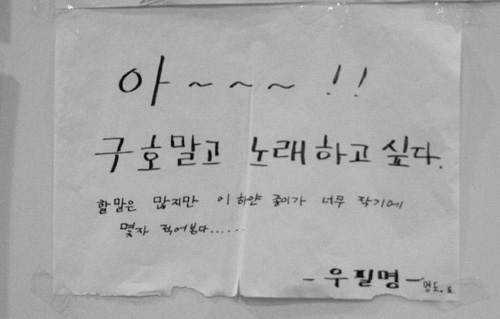 아~~~!!
구호말고 노래하고 싶다.
할말은 많지만 이 하얀 종이가 너무 작기에
몇자 적어봅다......
- 우필명 -